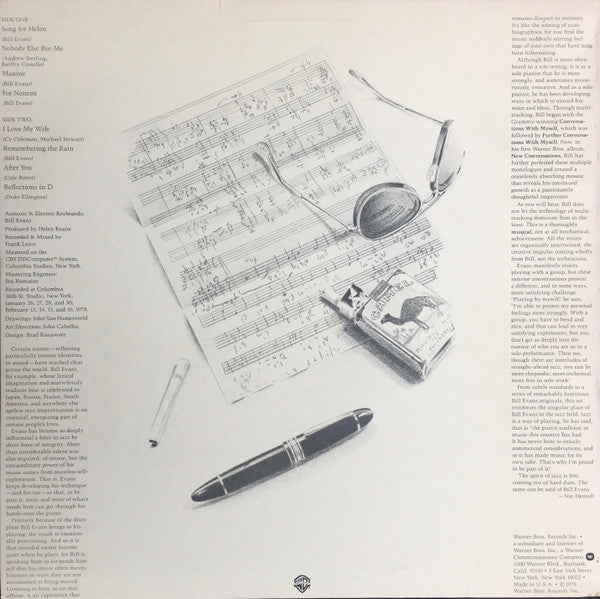 SIDE ONE
Song for Helen
(Bill Evans)
Nobody Else But Me
(Andrew Sterling,
Bartley Costello)
Maxine
(Bill Evans)
For Nenette
(Bill Evans)
SIDE TWO
I Love My Wife
(Cy Coleman, Michael Stewart)
Remembering the Rain
(Bill Evans)
After You
(Cole Porter)
Reflections in D
(Duke Ellington)
Acoustic & Electric Keyboards:
Bill Evans
Produced by Helen Keane
Recorded & Mixed by
Frank Laico
Mastered on the
CBS DISComputer™ System,
Columbia Studios, New York.
Mastering Engineer:
Stu Romaine
Recorded at Columbia
30th St. Studio, New York,
January 26, 27, 28, and 30;
February 13, 14, 15, and 16, 1978.
Drawings: John Van Hamersveld
Art Direction: John Cabalka
Design: Brad Kanawyer
Certain names—reflecting
particularly intense identities
in sound—have reached clear
across the world. Bill Evans,
for example, whose lyrical
imagination and marvelously
resilient beat is celebrated in
Japan, Russia, France, South
America, and anywhere else
ageless jazz improvisation is an
essential, energizing part of
certain people's lives.
Evans has become so deeply
influential a force in jazz by
sheer force of integrity. More
than considerable talent was
also required, of course, but the
extraordinary power of his
music comes from ceaseless self-
exploration. That is, Evans
keeps developing his technique
—and his ear—so that, as he
puts it, more and more of what's
inside him can get through his
hands onto the piano.
Precisely because of the disci-
pline Bill Evans brings to his
playing, the result is emotion-
ally penetrating. And so it is
that crowded rooms become
quiet when he plays, for Bill is
speaking from so far inside him-
self that his music often moves
listeners in ways they are not
accustomed to being moved.
Listening to him, as on this
album, is an experience that
remains distinct in memory.
It's like the joining of auto-
biographies, for you find the
music suddenly stirring feel-
ings of your own that have long
been hibernating.
Although Bill is more often
heard in a trio setting, it is as a
solo pianist that he is most
strongly, and sometimes mys-
teriously, evocative. And as a solo
pianist, he has been developing
ways in which to extend his
voice and ideas. Through multi-
tracking, Bill began with the
Grammy-winning Conversa-
tions With Myself, which was
followed by Further Conversa-
tions With Myself. Now, in
his first Warner Bros. album,
New Conversations, Bill has
further perfected these multiple
monologues and created a
ceaselessly absorbing mosaic
that reveals his continued
growth as a passionately
thoughtful improviser.
As you will hear, Bill does
not let the technology of multi-
tracking dominate him in the
least. This is a thoroughly
musical, not at all mechanical,
achievement. All the voices
are organically intertwined, the
creative impulse coming wholly
from Bill, not the technicians.
Evans manifestly enjoys
playing with a group, but these
interior conversations present
a different, and in some ways,
more satisfying challenge.
"Playing by myself," he says,
"I'm able to project my personal
feelings more strongly. With a
group, you have to bend and
mix, and that can lead to very
satisfying experiences, but you
don't get as deeply into the
essence of who you are as in a
solo performance. Then too,
though there are interludes of
straight-ahead jazz, you can be
more rhapsodic, more orchestral,
more free in solo work."
From subtle standards to a
series of remarkably luminous
Bill Evans originals, this set
reinforces the singular place of
Bill Evans in the jazz field. Jazz
is a way of playing, he has said,
that is "the purest tradition in
music this country has had.
It has never bent to strictly
commercial considerations, and
so it has made music for its
own sake. That's why I'm proud
to be part of it."
The spirit of jazz is free,
coming out of hard dues. The
same can be said of Bill Evans.
—Nat Hentoff
CAMEL
Warner Bros. Records Inc. •
a subsidiary and licensee of
Warner Bros. Inc., a Warner
Communications Company
3300 Warner Blvd., Burbank,
Calif. 91510 • 3 East 54th Street,
New York, New York 10022 •
Made in U.S.A. • © 1978
Warner Bros. Records Inc.